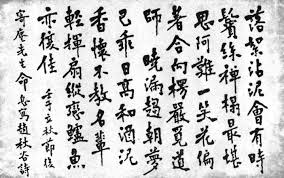 落絮沾泥會有時
鬢絲禪榻最堪
思阿難一笑花偏
著合向楞嚴覓
師 曉漏趨朝夢
已乖日高和酒
香懷不教名輩
輕揮扇縱鱸魚
亦復佳 壬午立秋節後
寄庵先生命 寫趙秋谷詩